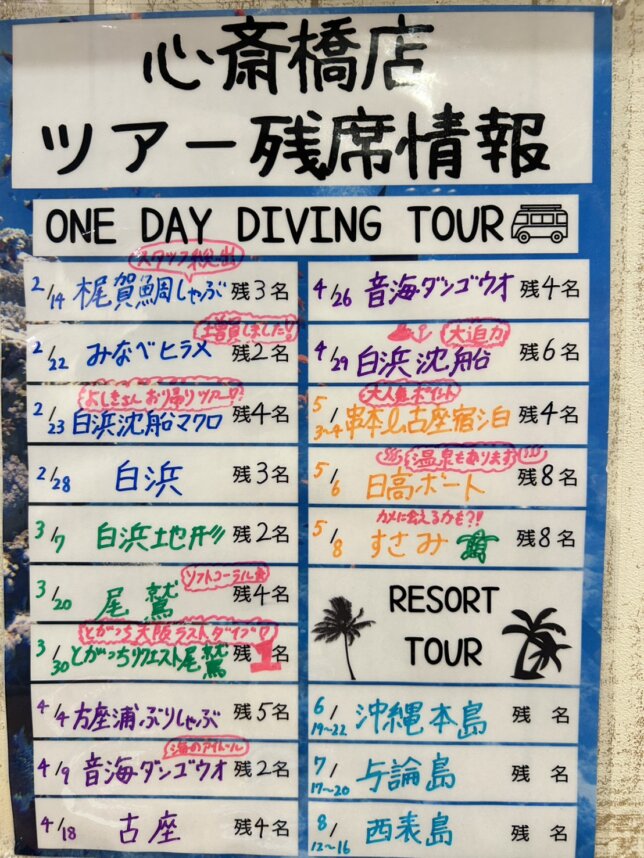 心斎橋店
ツアー残席情報
ONE DAY DIVING TOUR
2/14 梶賀鯛しゃぶ 残3名
増員しました!!
2/22 みなべヒラメ 残2名
よしきさん お帰りツアー♡
2/23 白浜沈船マクロ 残4名
2/28 白浜 残3名
3/7 白浜地形 残2名
ソフトコーラル
3/20 尾鷲 残4名
とがっち大阪ラストダイブ
3/30 とがっちリクエスト尾鷲 残1名
4/4 方座浦ぶりしゃぶ 残5名
海のアイドル
4/9 音海ダンゴウオ 残2名
4/18 古座 残4名
4/26 音海ダンゴウオ 残4名
大迫力
4/29 白浜沈船 残6名
大人気ポイント
5/3~4 串本&古座宿泊 残4名
温泉もあります
5/6 日高ボート 残8名
カメに会えるかも?!
5/8 すさみ 残8名
RESORT
TOUR
6/19~22 沖縄本島 残 名
7/17~20 与論島 残 名
8/12~16 西表島 残 名